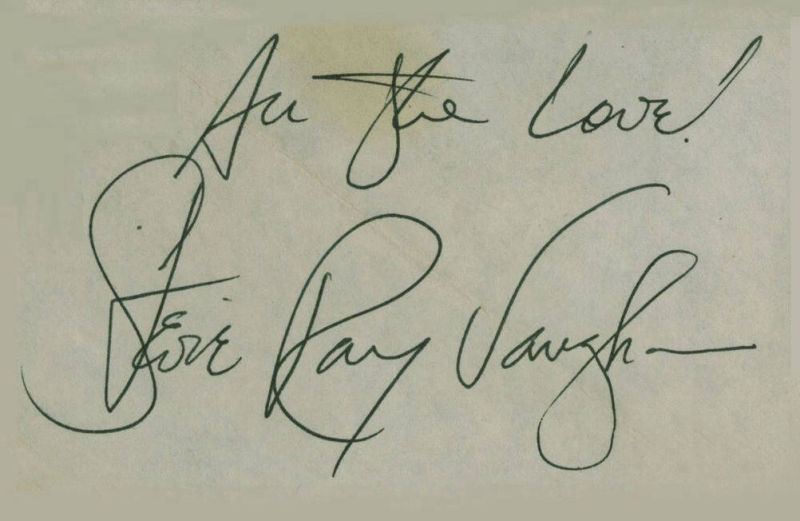 All the Love!
Stevie Ray Vaughan